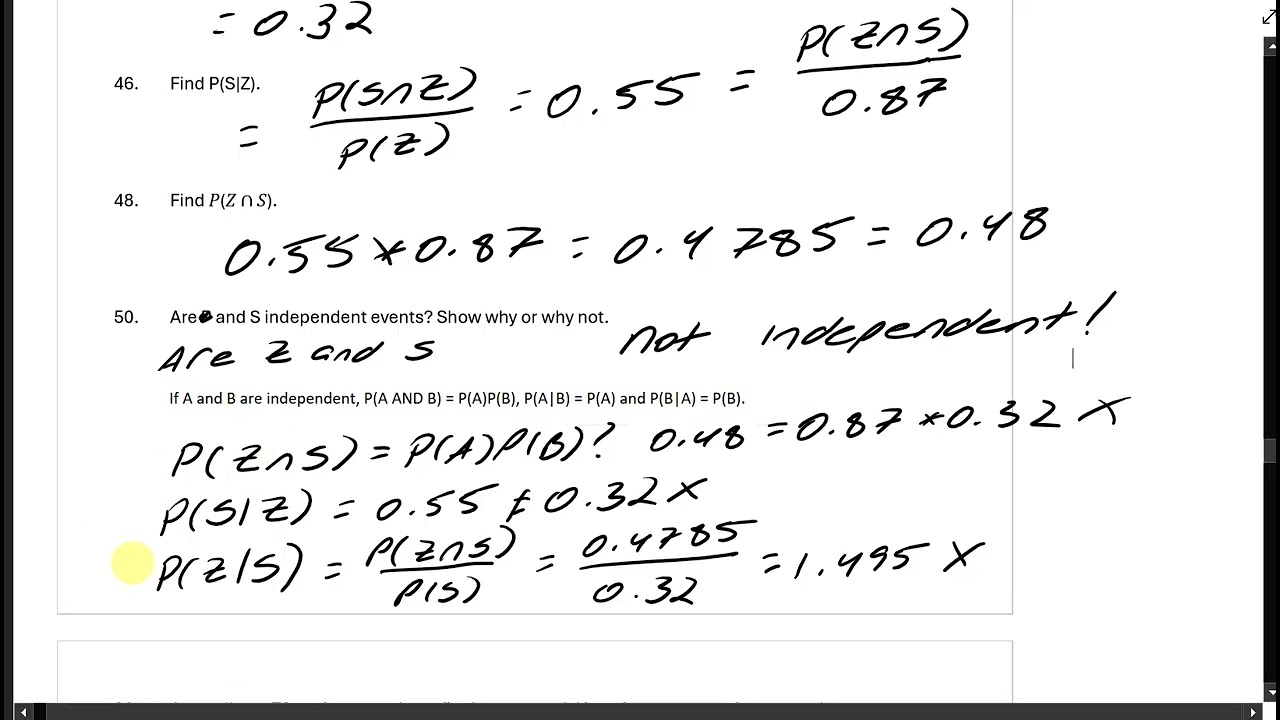 = 0.32
46. Find P(S|Z).
= P(S∩Z) / P(Z) = 0.55 = P(Z∩S) / 0.87
48. Find P(Z ∩ S).
0.55 * 0.87 = 0.4785 = 0.48
50. Are and S independent events? Show why or why not.
Are Z and S not independent!
If A and B are independent, P(A AND B) = P(A)P(B), P(A|B) = P(A) and P(B|A) = P(B).
P(Z∩S) = P(A)P(B)? 0.48 = 0.87 * 0.32 X
P(S|Z) = 0.55 ≠ 0.32 X
P(Z|S) = P(Z∩S) / P(S) = 0.4785 / 0.32 = 1.495 X